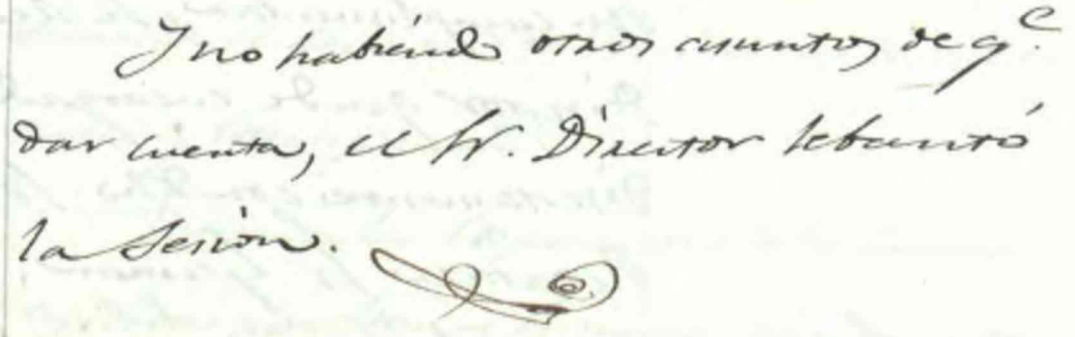 Y no habiendo otros asuntos de q.e
dar cuenta, el Sr. Director lebantó
la Sesion.